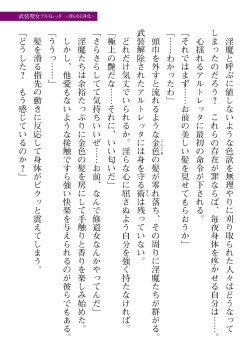 武装聖女アルトレッタ
淫魔と呼ぶに値しないような色欲を無理やりに刈り取られた人々はどうなって
しまったのだろう？　これらの存在が罪ならば、毎夜身体を疼かせる自分は……。
心揺れるアルトレッタに最初の命令が下される。
「それではまず……お前の美しい髪を見せてもらおうか」
「……わかったわ」
頭巾を外すと流れるような金色の髪が零れ落ち、その周りに淫魔たちが群がる。
武装解除されたアルトレッタには身を守る術は残っていない。
どれだけ気丈でいられるか。淫らな心に屈さぬよう自分を強く持たなければ。
「極上の艶だな……それに、いい匂いだ」
「さらさらしてて気持ちいいぜ……お前、なんで修道女なんかやってんだ」
淫魔たちは余裕たっぷりに金色の髪を房にして手触りと香りを楽しみ始めた。
しかし、他愛もないような接触ですら強い快楽を与えられるのが彼らでもある。
「ううっ……」
髪を滑る指先の動きに反応して身体がビクッと震えてしまう。
「どうした？　もう感じているのか？」